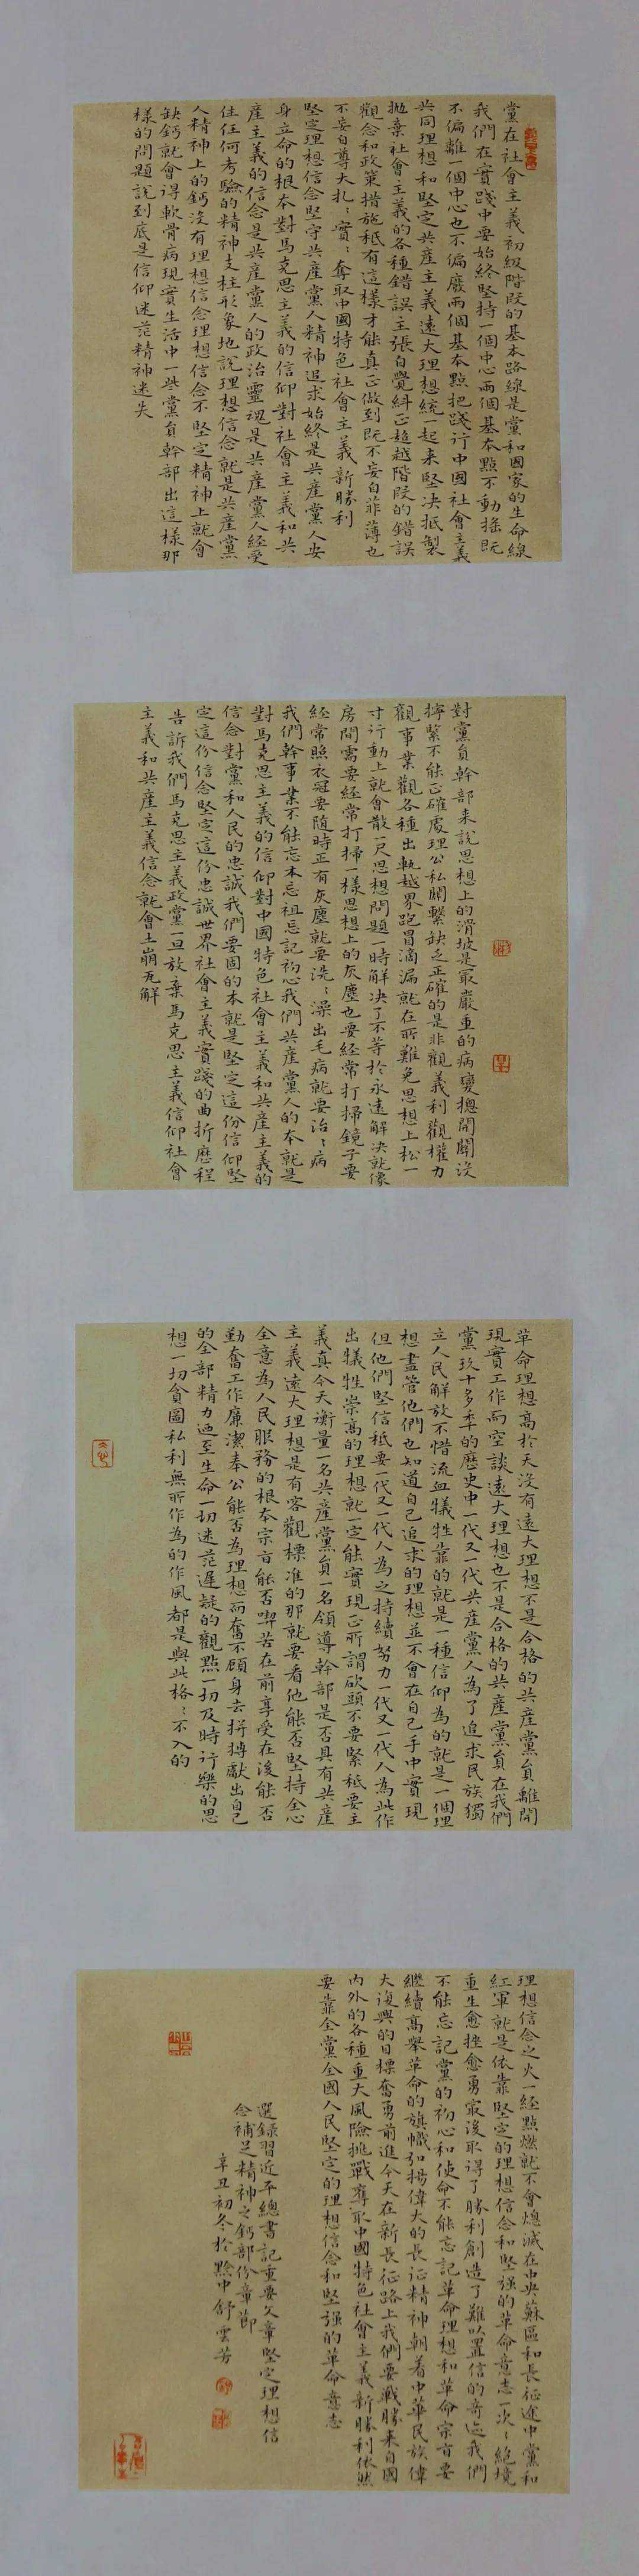 黨在社會主義初級階段的基本路線是黨和國家的生命線
我們在實踐中要始終堅持一個中心兩個基本點不動摇既
不偏離一個中心也不偏廢兩個基本點把踐行中國社會主義
共同理想和堅定共產主義遠大理想統一起来堅决抵製
抛棄社會主義的各種錯誤主張自覺糾正超越階段的錯誤
觀念和政策措施秖有這樣才能真正做到既不妄自菲薄也
不妄自尊大扎〻實〻奪取中國特色社會主義新勝利
堅定理想信念堅守共產黨人精神追求始終是共產黨人安
身立命的根本對馬克思主義的信仰對社會主義和共
產主義的信念是共產黨人的政治靈魂是共產黨人經受
住任何考驗的精神支柱形象地說理想信念就是共產黨
人精神上的鈣沒有理想信念理想信念不堅定精神上就會
缺鈣就會得軟骨病現實生活中一些黨員幹部出這樣那
樣的問題說到底是信仰迷茫精神迷失
對黨員幹部来說思想上的滑坡是最嚴重的病變摠開關沒
擰緊不能正確處理公私關繫缺乏正確的是非觀義利觀權力
觀事業觀各種出軌越界跑冒滴漏就在所難免思想上松一
寸行動上就會散一尺思想問題一時解决了不等於永遠解决就像
房間需要經常打掃一樣思想上的灰塵也要經常打掃鏡子要
經常照衣冠要隨時正有灰塵就要洗〻澡出毛病就要治〻病
我們幹事業不能忘本忘祖忘記初心我們共產黨人的本就是
對馬克思主義的信仰對中國特色社會主義和共產主義的
信念對黨和人民的忠誠我們要固的本就是堅定這份信仰堅
定這份信念堅定這份忠誠世界社會主義實踐的曲折歷程
告訴我們馬克思主義政黨一旦放棄馬克思主義信仰社會
主義和共產主義信念就會土崩瓦解
革命理想高於天沒有遠大理想不是合格的共產黨員離開
現實工作而空談遠大理想也不是合格的共產黨員在我們
黨玖十多年的歷史中一代又一代共產黨人為了追求民族獨
立人民解放不惜流血犠牲靠的就是一種信仰為的就是一個理
想盡管他們也知道自己追求的理想並不會在自己手中實現
但他們堅信秖要一代又一代人為之持續努力一代又一代人為此作
出犠牲崇高的理想就一定能實現正所謂砍頭不要緊秖要主
義真今天衡量一名共產黨員一名領導幹部是否具有共產
主義遠大理想是有客觀標准的那就要看他能否堅持全心
全意為人民服務的根本宗旨能否喫苦在前享受在後能否
勤奮工作廉潔奉公能否為理想而奮不顧身去拼搏獻出自己
的全部精力迺至生命一切迷茫遲疑的觀點一切及時行樂的思
想一切貪圖私利無所作為的作風都是與此格〻不入的
理想信念之火一經點燃就不會熄滅在中央蘇區和長征途中黨和
紅軍就是依靠堅定的理想信念和堅强的革命意志一次〻絶境
重生愈挫愈勇最後取得了勝利創造了難以置信的奇迹我們
不能忘記黨的初心和使命不能忘記革命理想和革命宗旨要
繼續高舉革命的旗幟弘揚偉大的長征精神朝着中華民族偉
大復興的目標奮勇前進今天在新長征路上我們要戰勝来自國
内外的各種重大風險挑戰奪取中國特色社會主義新勝利依然
要靠全黨全國人民堅定的理想信念和堅强的革命意志
選錄習近平總書記重要文章堅定理想信
念補足精神之鈣部份章節
辛丑初冬於黔中舒雲芳